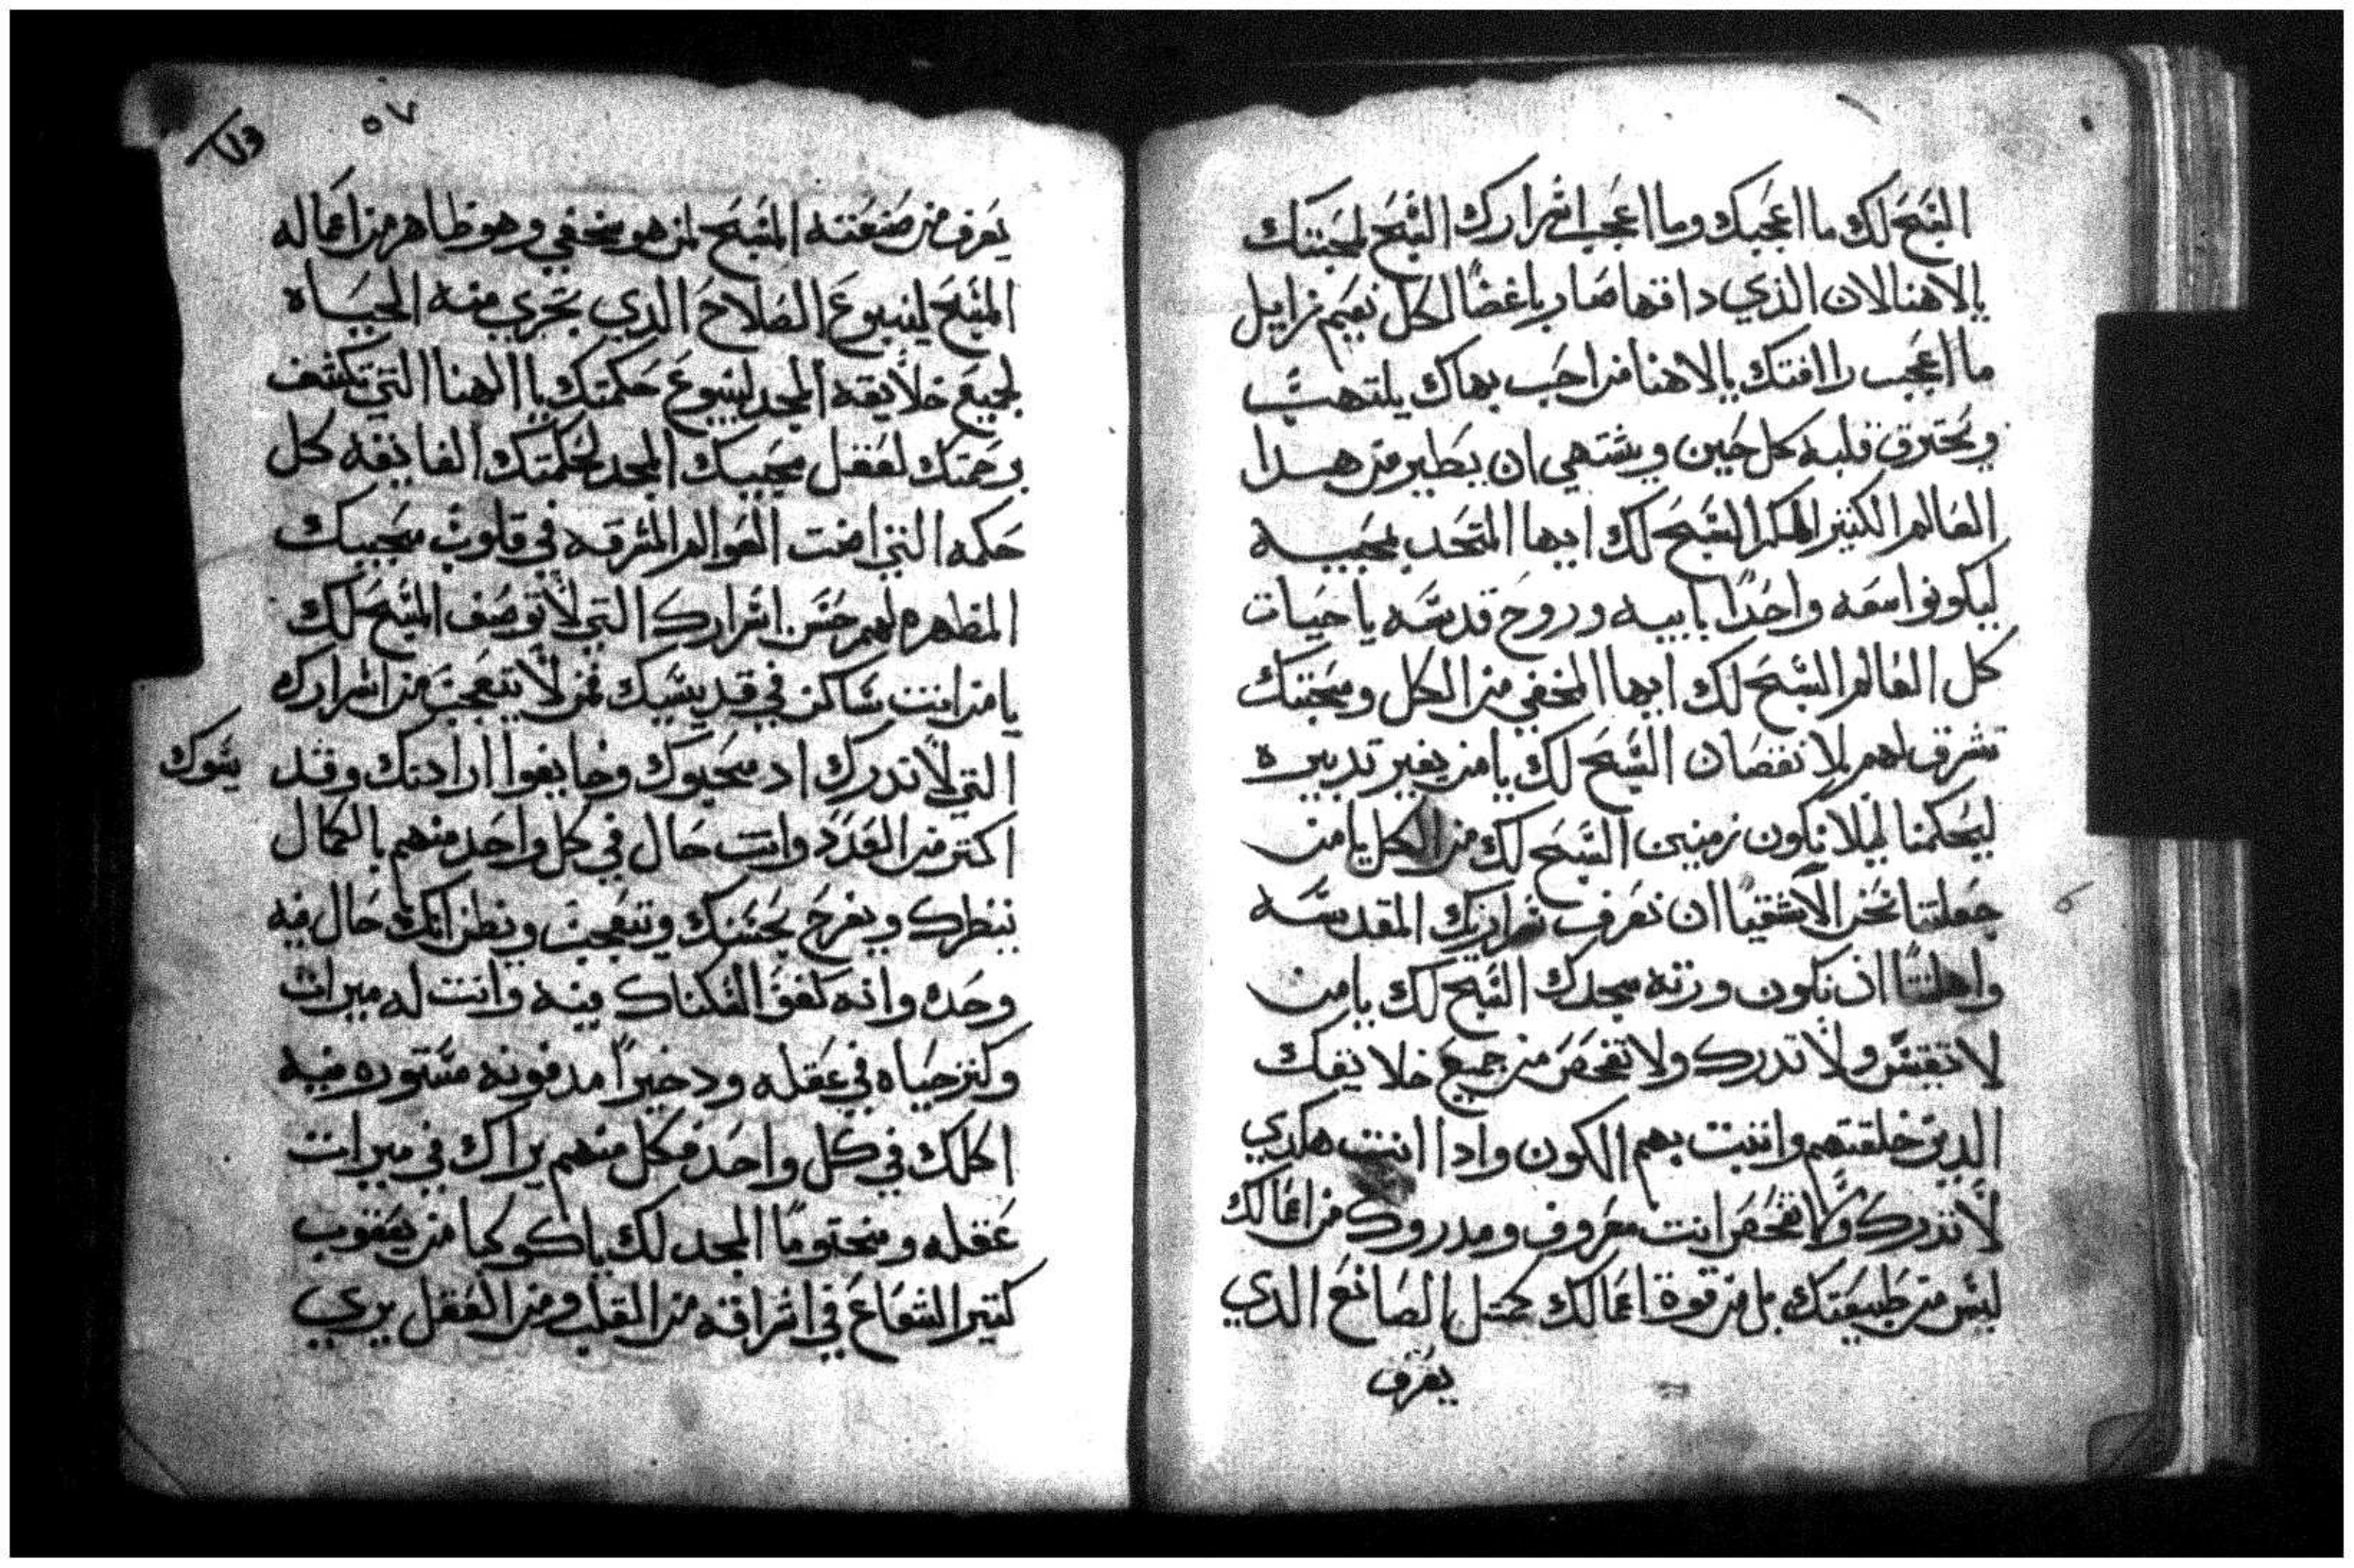 السبح لك ما اعجبك وما اعجب اسرارك السبح لمحبتك
يالاهنا لان الذي داقها صار باغضا لكل نعيم زايل
ما اعجب راافتك يالاهنا من احب بهاك يلتهب
ويحترق قلبه كل حين ويشتهي ان يطير من هدا
العالم الكتير السبح لك ايها المتحد بمحبيه
ليكونوا معه واحدا بابيه وروح قدسه يا حيات
كل العالم السبح لك ايها المخفي من الكل ومحبتك
تشرق لهم بلا نقصان السبح لك يا من يغير تدبيره
ليحكمنا ليلا نكون زمنيين السبح لك من الكل يا من
جعلتنا نحن الاشقيا ان نعرف المقدسه
واهلتنا ان نكون ورته مجدك السبح لك يا من
لا تفتش ولا تدرك ولا تفحص من جميع خلايقك
الدين خلقتهم واتيت بهم الكون وادا انت هكدي
لا تدرك ولا تفحص انت معروف ومدروك من اعمالك
ليس من طبيعتك بل من قوة اعمالك كمتل الصانع الدي
يعرف
٥٧
يعرف من صنعته السبح لمن هو مخفي وهو ظاهر من اعماله
السبح لينبوع الصلاح الدي تجري منه الحياه
لجميع خلايقه المجد لينبوع حكمتك يا الهنا التي تكشف
برحمتك لعقل محبيك المجد لحكمتك الفايقه كل
حكمه التي اضت العوالم المشرقه في قلوب محبيك
المظهره لهم حسن اسرارك التي لا توصف السبح لك
يا من انت ساكن في قديسيك فمن لا يتعجب من اسرارك
التي لا تدرك اد محبوك وخايفوا ارادتك وقد يتوك
اكتر من العدد وانت حال في كل واحد منهم بالكمال
ينظرك ويفرح بحسنك ويتعجب ويظن انك حال فيه
وحده وانه كفو لسكناك فيه وانت له ميرات
وكنز حياه في عقله ودخيرا مدفونه مستوره فيه
اكلك في كل واحد فكل منهم يراك في ميرات
عقله ومختوما المجد لك يا كوكبا من يعقوب
كتير الشعاع في اشراقه من القلب ومن العقل يري